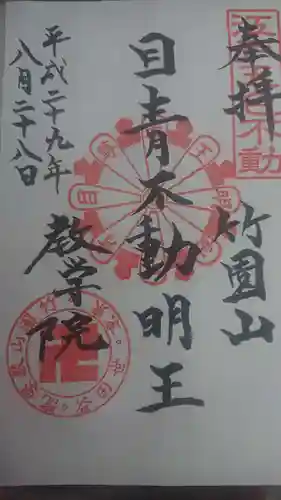 奉拝
竹園山
目青不動明王
教学院
平成二十九年
八月二十八日